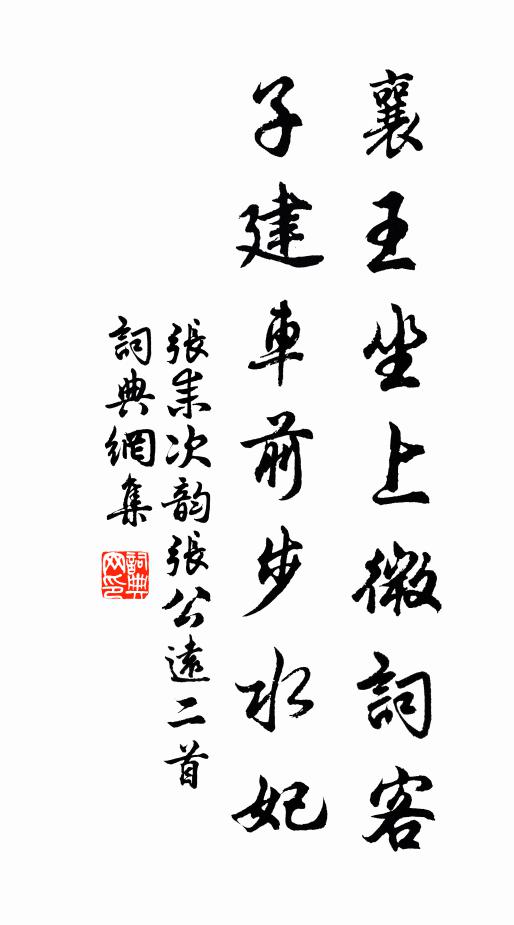 襄王坐上微詞客
子建車前步水妃
張耒次韵張公遠二首
詞典網集
詞典
网印